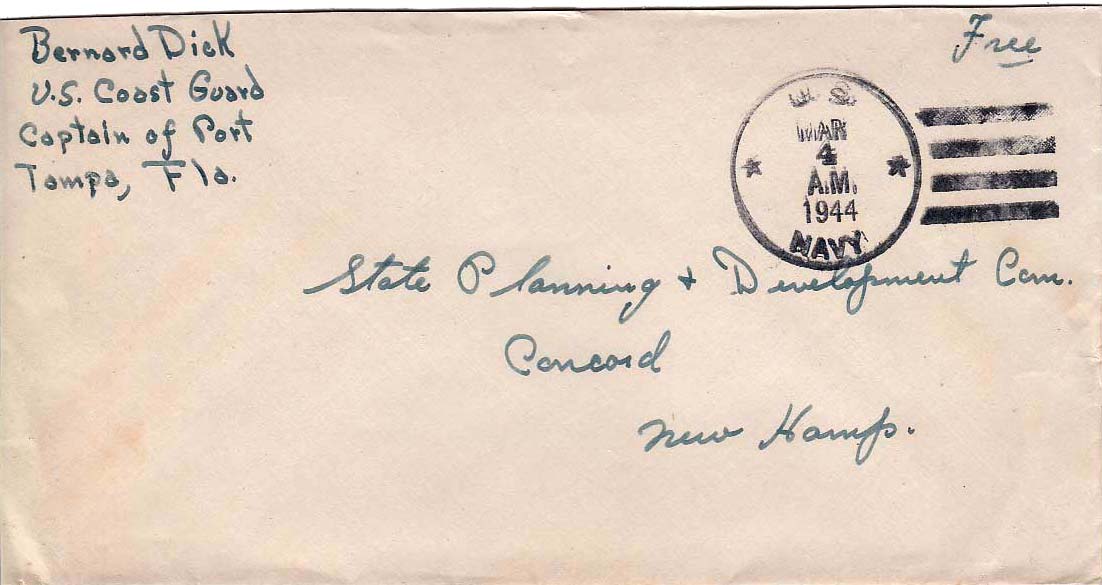 Bernard Dick
U.S. Coast Guard
Captain of Port
Tampa, Fla.
Free
U.S.
MAR
4
A.M.
1944
NAVY
State Planning + Development Com.
Concord
New Hamp.